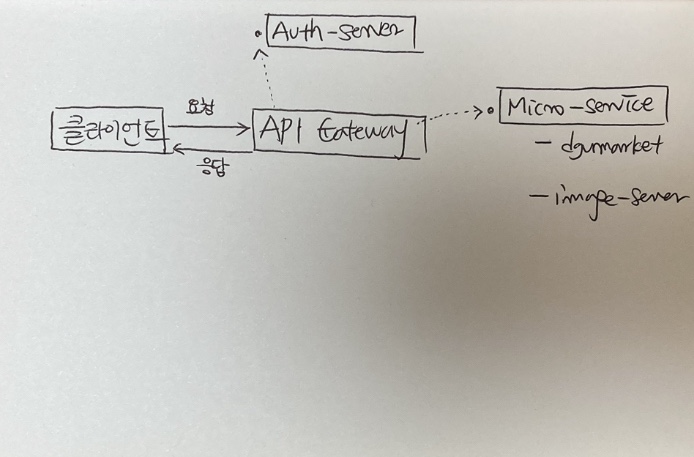 Auth-server
클라이언트
요청
응답
API Gateway
Micro-service
- dgumarket
- image-server